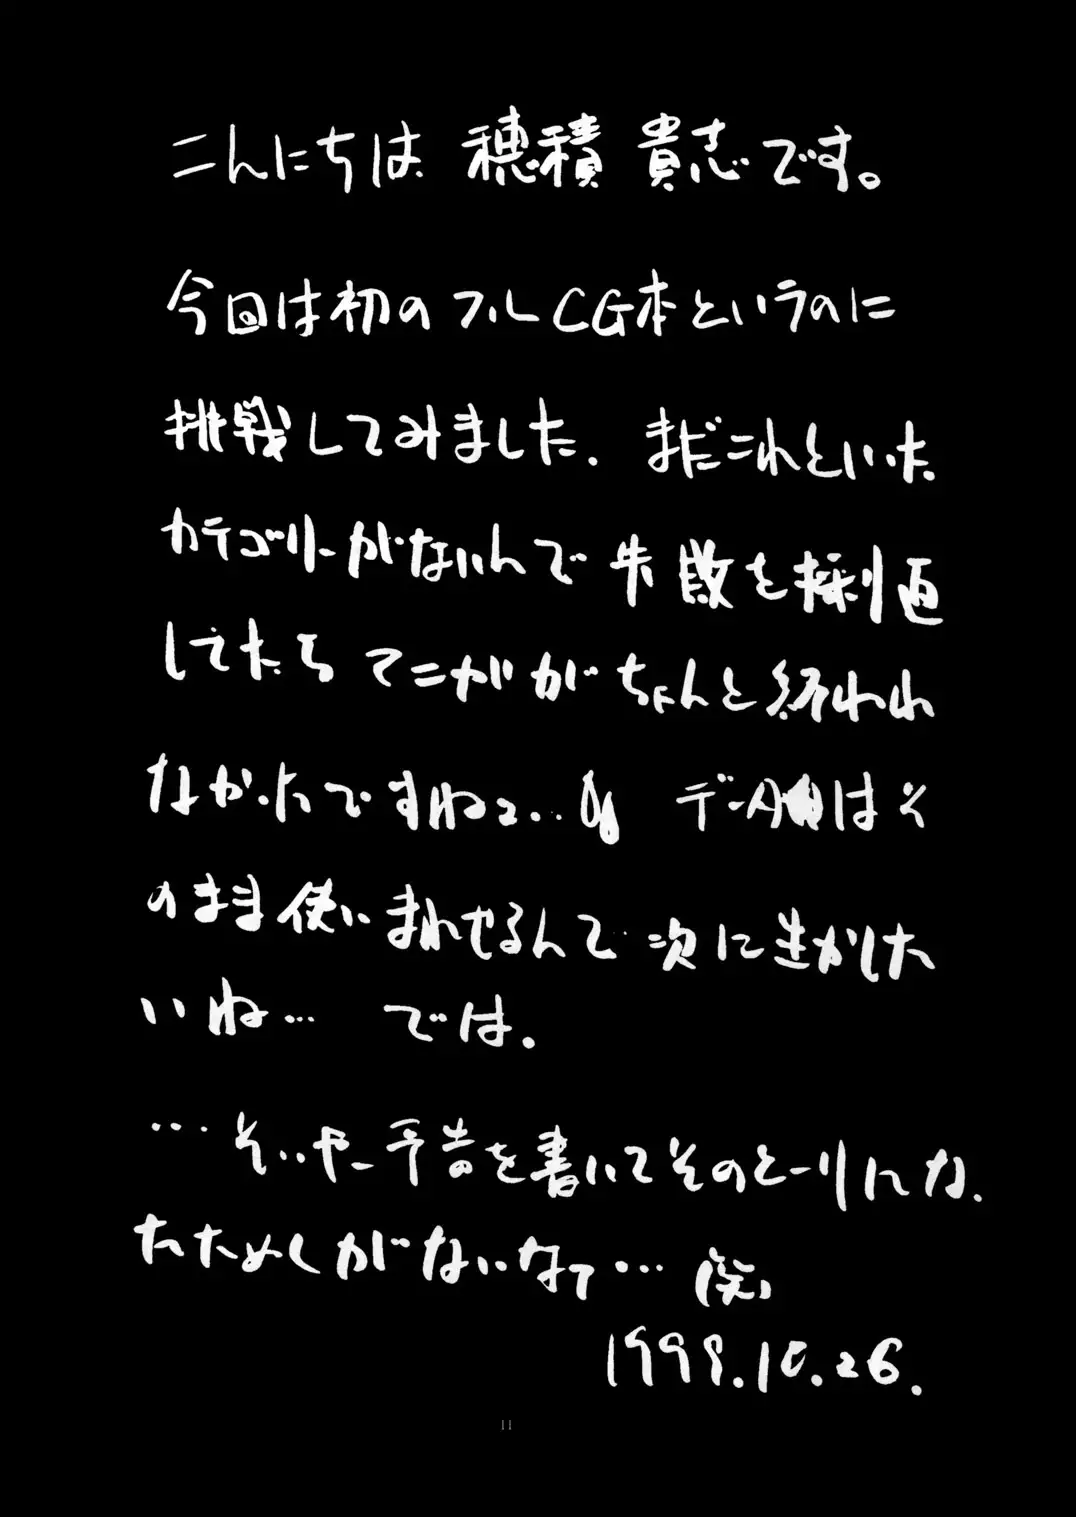 こんにちは 穂積 貴志です。
今回は初のフルCG本というのに
挑戦してみました. まだこれといった
カテゴリーがないんで 失敗を採り直
してたら てこががちゃんと終われ
なかったですねっ…
データは そ
のまま使いまわせるんで 次に生かした
いね… では.
…そいやー予告を書いてそのとーりになっ
たためしがないなァ… (笑)
1998.10.26.
11